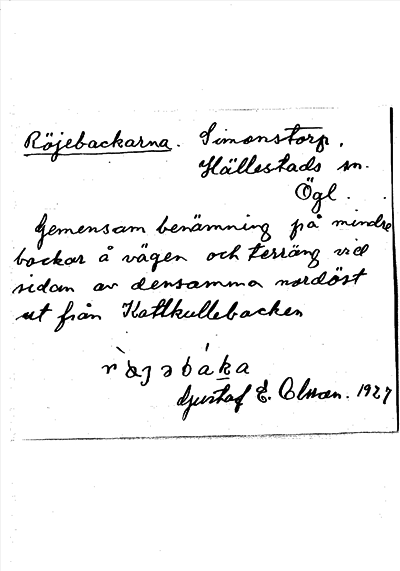 Röjebackarna. Simonstorp.
Hällestads sn.
Ögl.
Gemensam benämning på mindre
backar å vägen och terräng vid
sidan av densamma nordöst
ut från Kattkullebacken
Gustaf E. Olsson. 1927